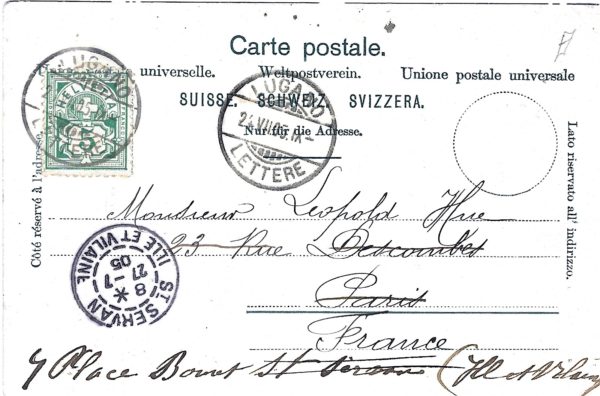 Carte postale.
universelle. Weltpostverein. Unione postale universale
SUISSE. SCHWEIZ. SVIZZERA.
Nur für die Adresse.
Côté réservé à l'adresse.
Lato riservato all' indirizzo.
LUGANO
HELVETIA
5
LUGANO
24.VII.05.IX-
LETTERE
Monsieur Leopold Hue
23 Rue Descombes
Paris
France
7 Place Bouvet St Servan (Ill et Vilaine
ST SERVAN
ILLE ET VILAINE
8 *
27 -7
05